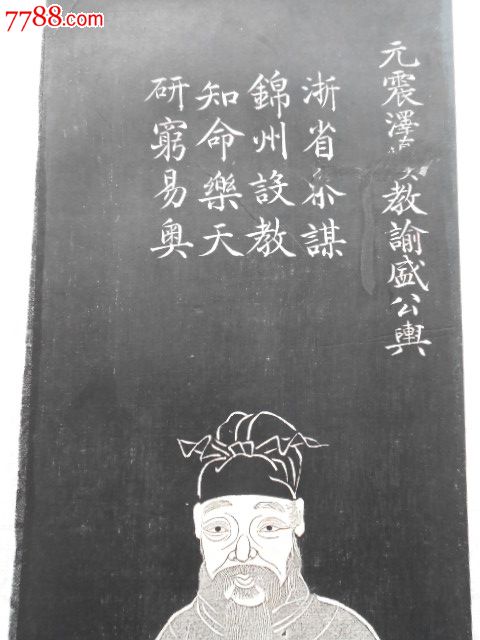 7788.com
元震澤教諭盛公輿
浙省参謀
錦州設教
知命樂天
研窮易奧